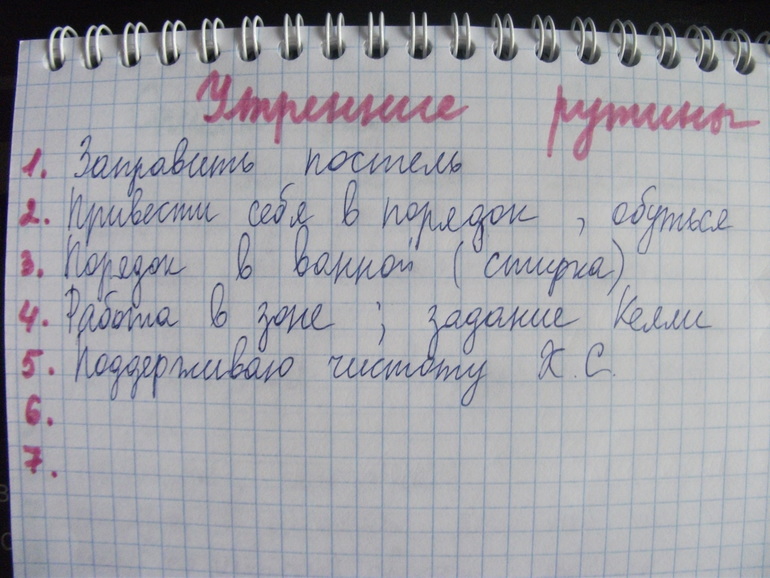 Утренние рутины
1. Заправить постель
2. Привести себя в порядок, обуться
3. Порядок в ванной (стирка)
4. Работа в зоне; задание Келли
5. Поддерживаю чистоту Х.С.
6.
7.